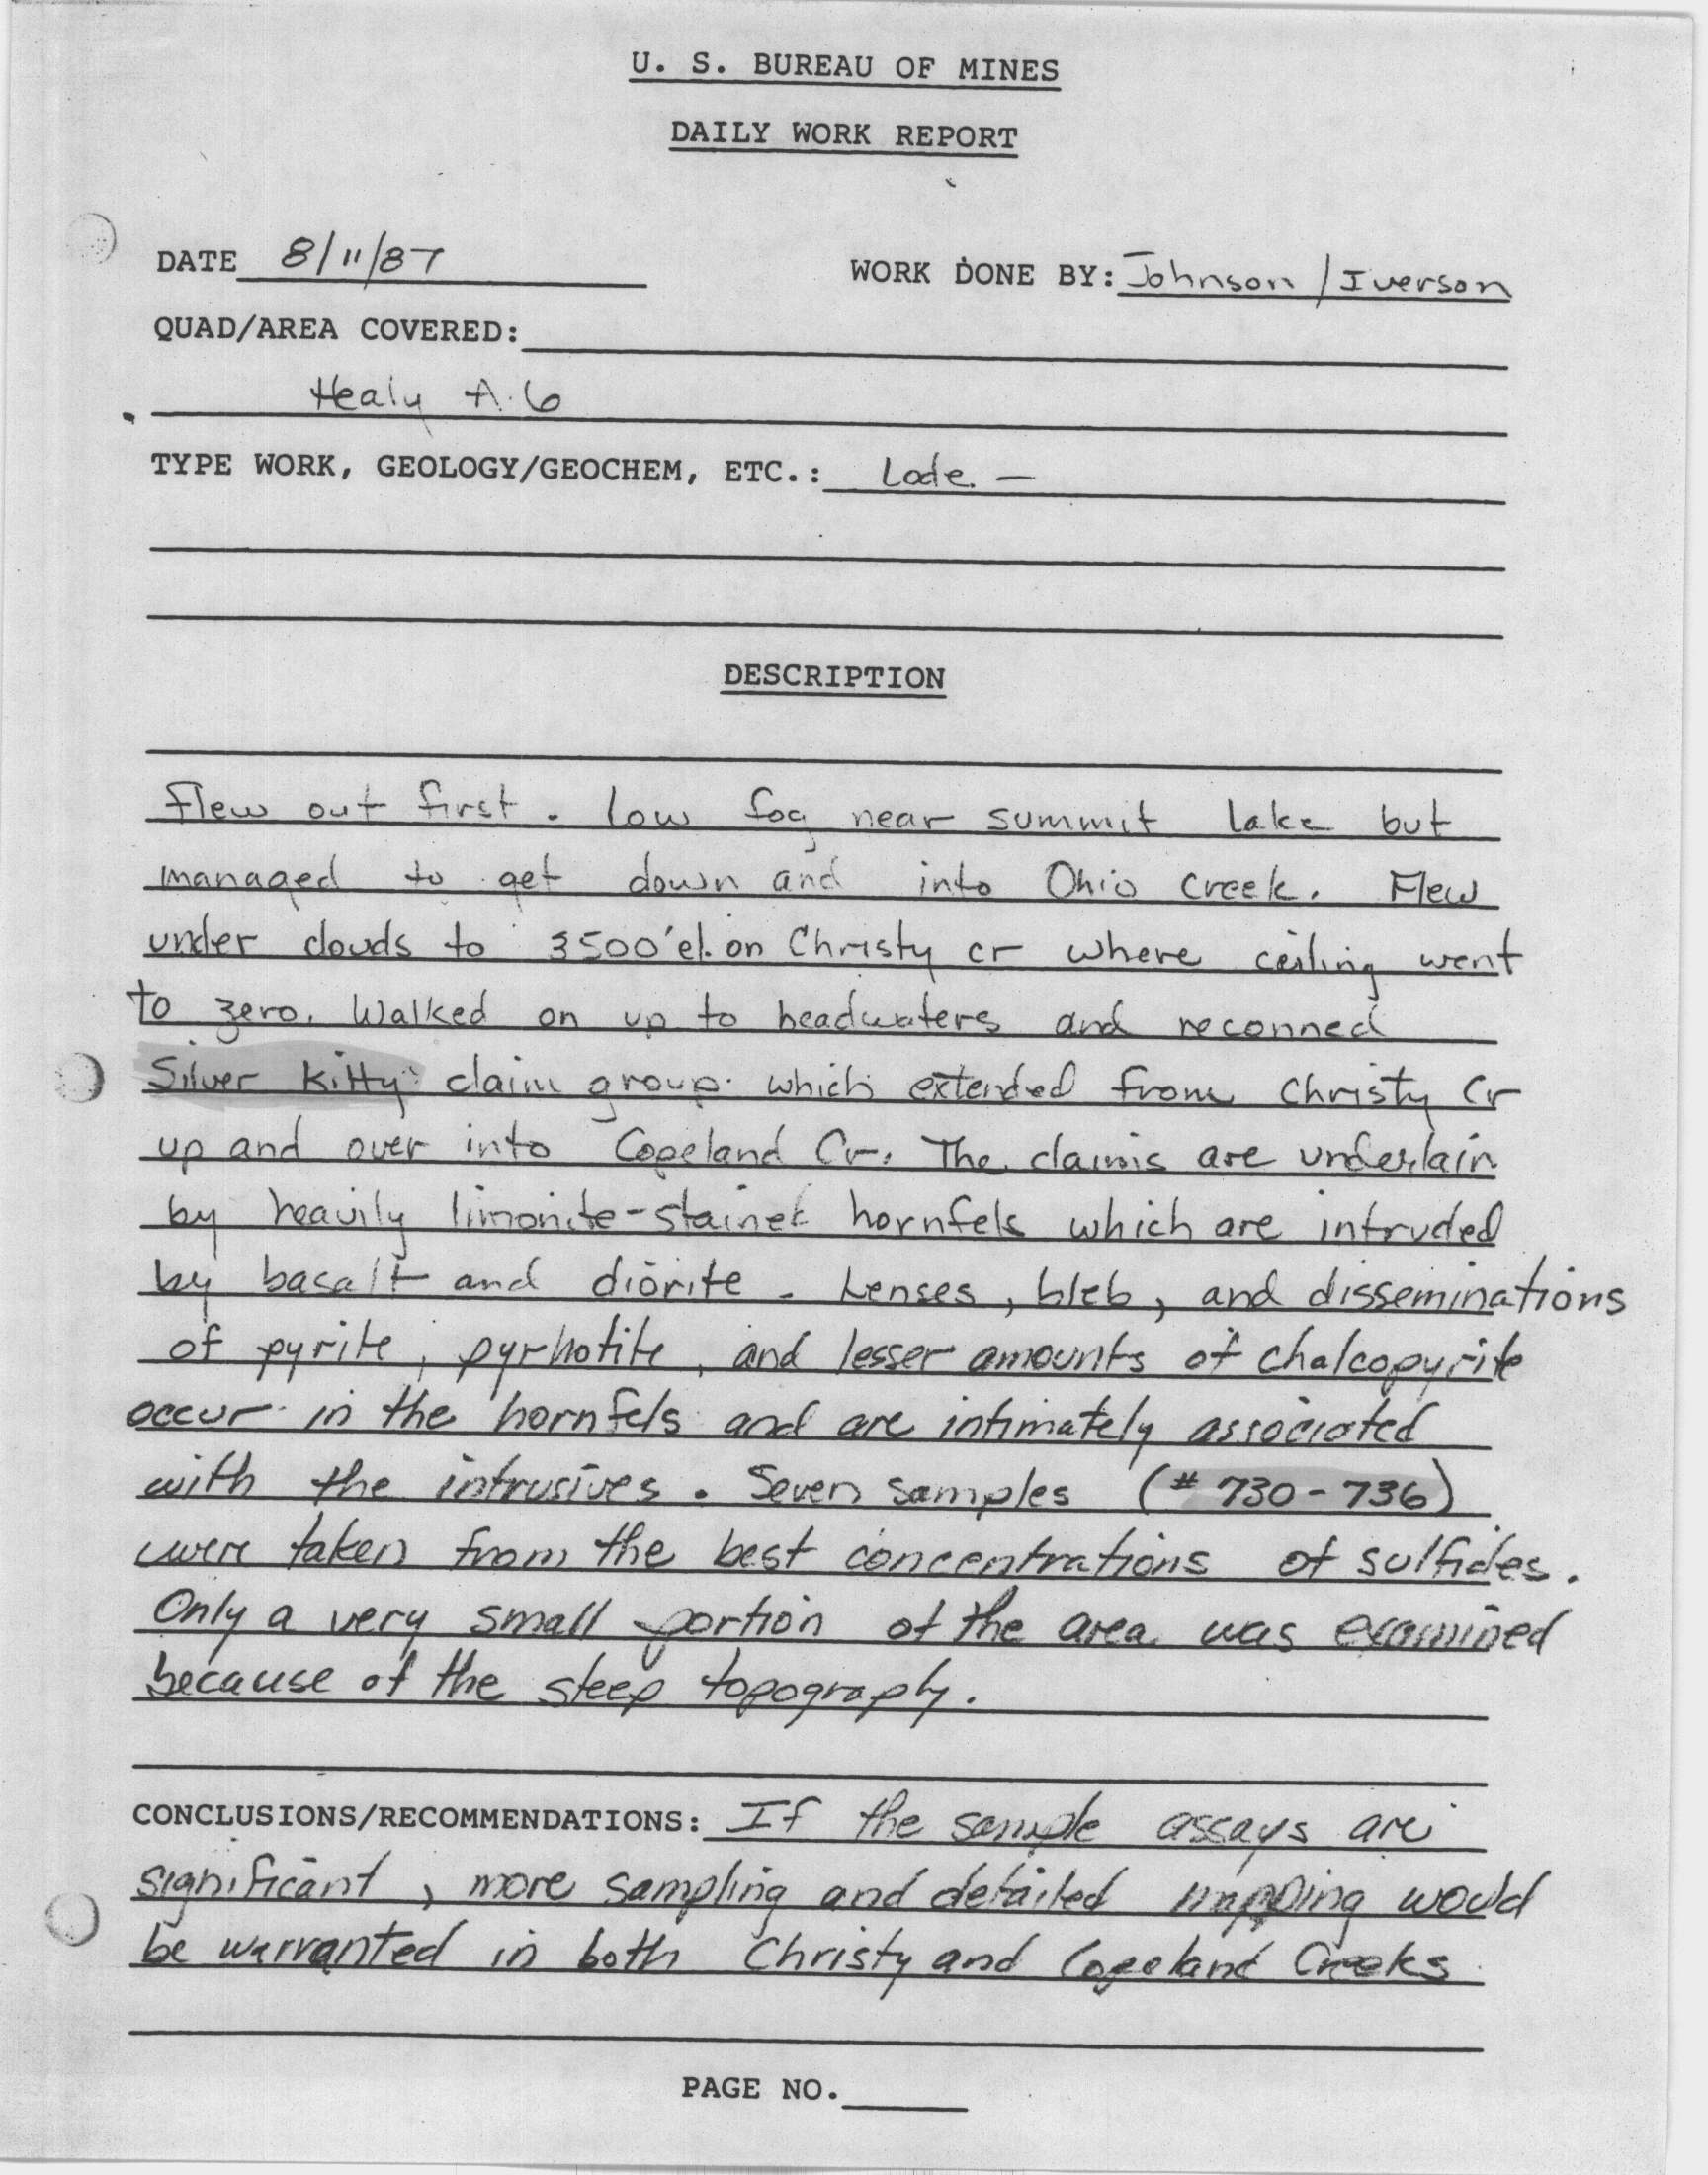 U. S. BUREAU OF MINES
DAILY WORK REPORT
DATE 8/11/87 WORK DONE BY: Johnson / Iverson
QUAD/AREA COVERED:
Healy A.6
TYPE WORK, GEOLOGY/GEOCHEM, ETC.: Lode. —
DESCRIPTION
Flew out first. low fog near summit lake but
managed to get down and into Ohio creek. Flew
under clouds to 3500' el. on Christy cr where ceiling went
to zero. Walked on up to headwaters and reconned
Silver Kitty claim group which extended from Christy Cr
up and over into Copeland Cr. The claims are underlain
by heavily limonite-stained hornfels which are intruded
by basalt and diorite. Lenses, bleb, and disseminations
of pyrite, pyrhotite, and lesser amounts of chalcopyrite
occur in the hornfels and are intimately associated
with the intrusives. Seven samples (# 730-736)
were taken from the best concentrations of sulfides.
Only a very small portion of the area was examined
because of the steep topography.
CONCLUSIONS/RECOMMENDATIONS: If the sample assays are
significant, more sampling and detailed mapping would
be warranted in both Christy and Copeland Creeks
PAGE NO.